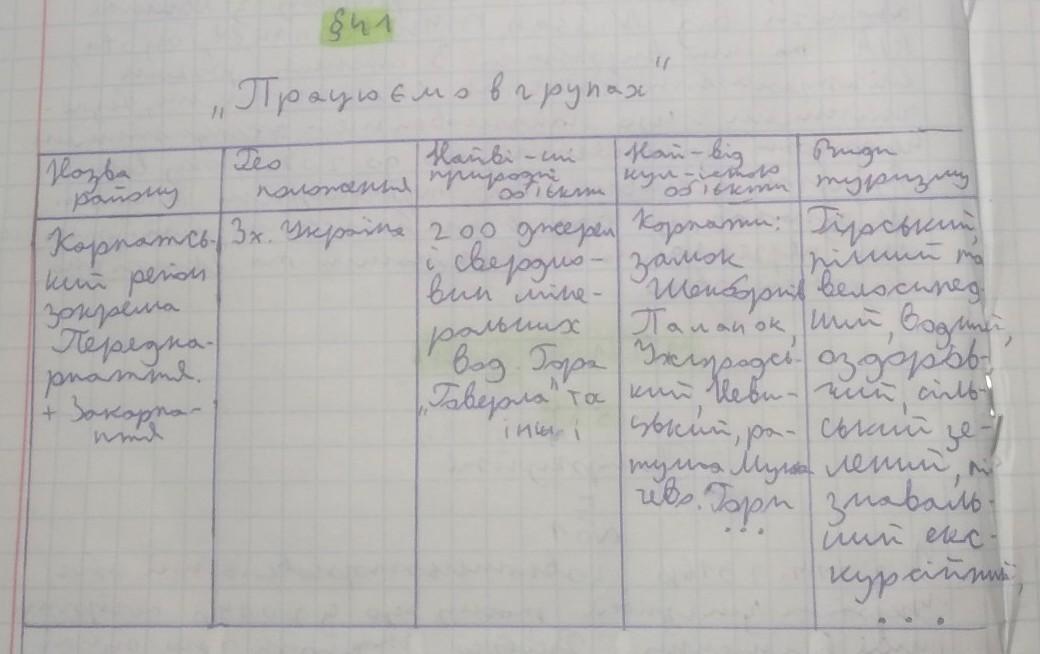 §41
„Працюємо в групах"
Назва
району
Гео
положення
Найві-ші
природні
об'єкти
Най-від
кул-істор
об'єкти
Види
туризму
Карпатсь-
кий регіон
зокрема
Передка-
рпаття.
+ Закарпа-
ття
Зх. Україна
200 джерел
і свердло-
вин міне-
ральних
вод. Гора
„Говерла" та
інші
Карпати:
замок
Шенборнів
Паланок,
Ужгородсь-
кий, Неви-
цький, ра-
туша Мука
чево. Гори
...
Гірський,
піший та
велосипед
ний, водний,
оздоров-
чий, сіль-
ський зе-
лений, пі
знаваль-
ний екс-
курсійний,
...